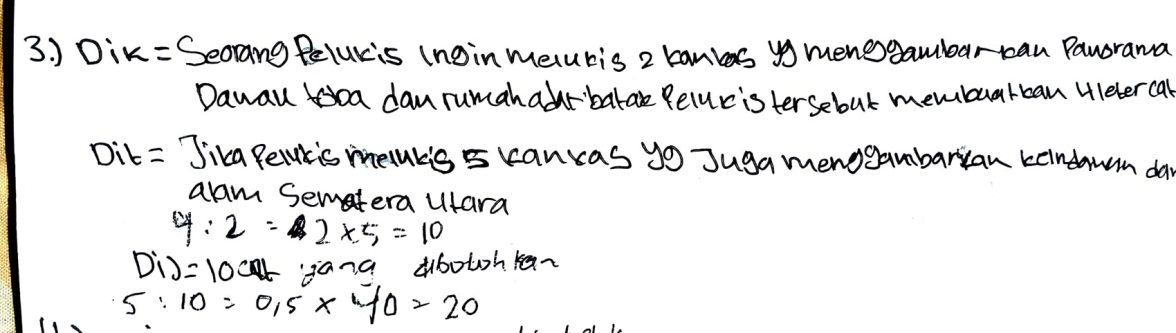 3.) Dik = Seorang Pelukis ingin melukis 2 kanvas yg menggambarkan Panorama
Danau toba dan rumah adat batak Pelukis tersebut membuatkan 4 leter cat
Dit = Jika Pelukis melukis 5 kanvas yg Juga menggambarkan keindahan dan
alam Sematera Utara
4 : 2 = 2 x 5 = 10
Dij = 10 cat yang dibutuhkan
5 : 10 = 0,5 x 40 = 20